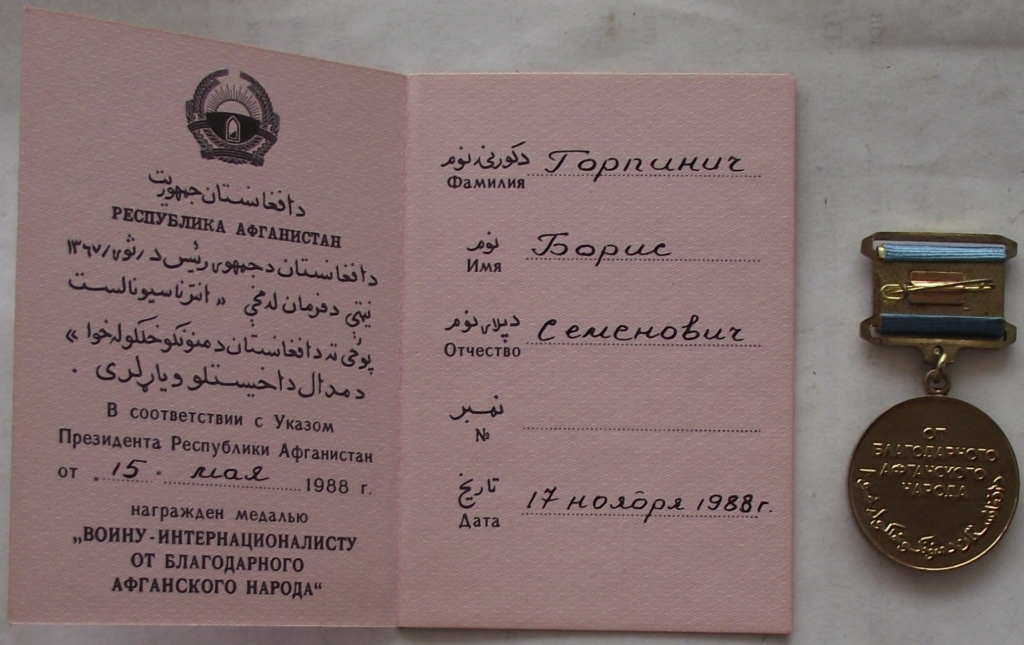 دافغانستان جمهوریت
РЕСПУБЛИКА АФГАНИСТАН
دافغانستان دجمهوری رئیس د / ثور / ۱۳۶۷
نیټې دفرمان له مخې « انترناسیونالست
پوځی ته دافغانستان دمنونکو خلکو له خوا »
دمدال داخیستلو ویاړلری .
В соответствии с Указом
Президента Республики Афганистан
от 15 мая 1988 г.
награжден медалью
„ВОИНУ-ИНТЕРНАЦИОНАЛИСТУ
ОТ БЛАГОДАРНОГО
АФГАНСКОГО НАРОДА“
دکورنۍ نوم Горпинич
Фамилия
نوم Борис
Имя
دپلار نوم Семенович
Отчество
نمبر
№
تاریخ 17 ноября 1988 г.
Дата
ОТ
БЛАГОДАРНОГО
АФГАНСКОГО
НАРОДА